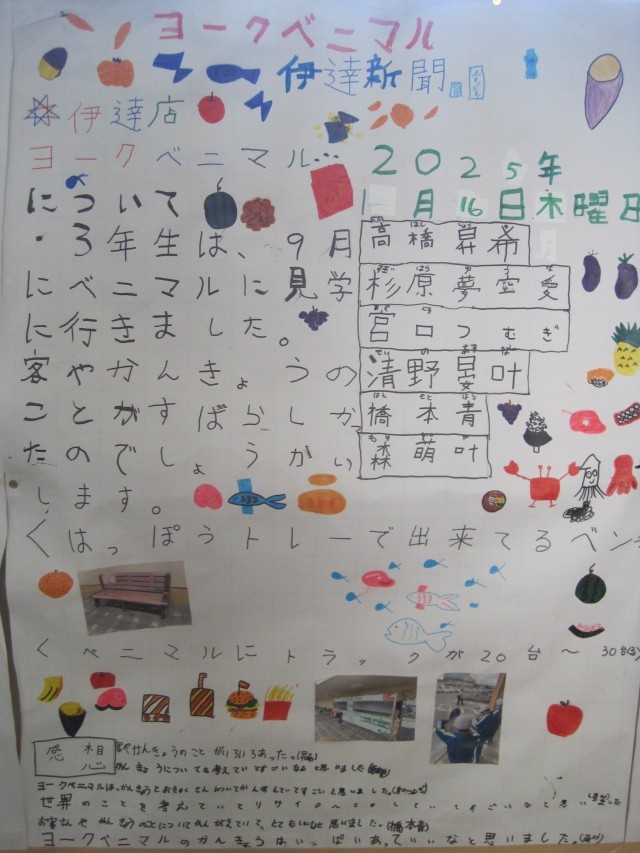 ヨークベニマル
伊達新聞
伊達店
ヨークベニマル…
2025年
1月16日木曜日
について
・3年生は、9月
にベニマルに見学
に行きました。
客やかんきょうの
ことがすばらしか
たのでしょうかい
します。
高橋昇希
杉原夢空愛
宮口つむぎ
清野晏叶
橋本青
森萌叶
くはっぽうトレーで出来てるベン
くベニマルにトラックが20台〜30台
感想
かんきょうのことがいろいろあったっ
かんきょうについても考えていてすごいなと思いました
世界のことを考えていてリサイクルをしていてすごいなと思いました
ヨークベニマルのかんきょうはいっぱいあっていいなと思いました。